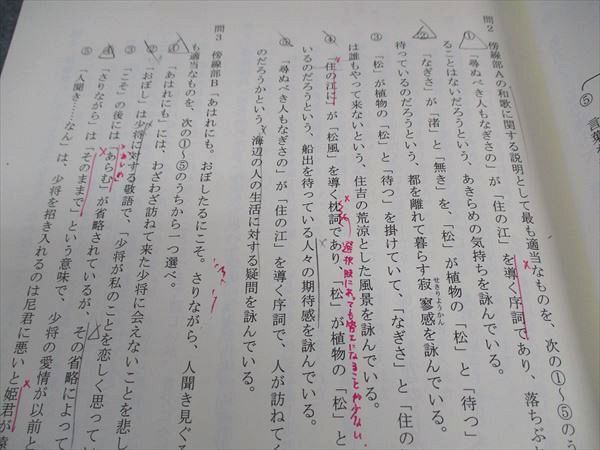 ⑤ 言葉
問2 傍線部Aの和歌に関する説明として最も適当なものを、次の①〜⑤のう
① 「尋ぬべき人もなぎさの」が「住の江」を導く序詞であり、落ちぶ
ることはないだろうという、あきらめの気持ちを詠んでいる。
② 「なぎさ」が「渚」と「無き」を、「松」が植物の「松」と「待つ」
待っているのだろうという、都を離れて暮らす寂寥感を詠んでいる。
せきりょうかん
③ 「松」が植物の「松」と「待つ」を掛けていて、「なぎさ」と「住の
は誰もやって来ないという、住吉の荒涼とした風景を詠んでいる。
選択肢にあっても答えになることや少ない
④ 「住の江に」が「松風」を導く枕詞であり、「松」が植物の「松」と
いるのだろうという、船出を待っている人々の期待感を詠んでいる。
⑤ 「尋ぬべき人もなぎさの」が「住の江」を導く序詞で、人が訪ねてく
のだろうかという、海辺の人の生活に対する疑問を詠んでいる。
問3 傍線部B「あはれにも。おぼしたるにこそ。さりながら、人聞き見ぐる
も適当なものを、次の①〜⑤のうちから一つ選べ。
① 「あはれにも」には、わざわざ訪ねて来た少将に会えないことを悲し
② 「おぼし」は少将に対する敬語で、「少将が私のことを恋しく思ってい
③ 「こそ」の後には「あらむ」が省略されているが、その省略によって
④ 「さりながら」は「そのままで」という意味で、少将の愛情が以前と
⑤ 「人聞き……なん」は、少将を招き入れるのは尼君に悪いと姫君が遠